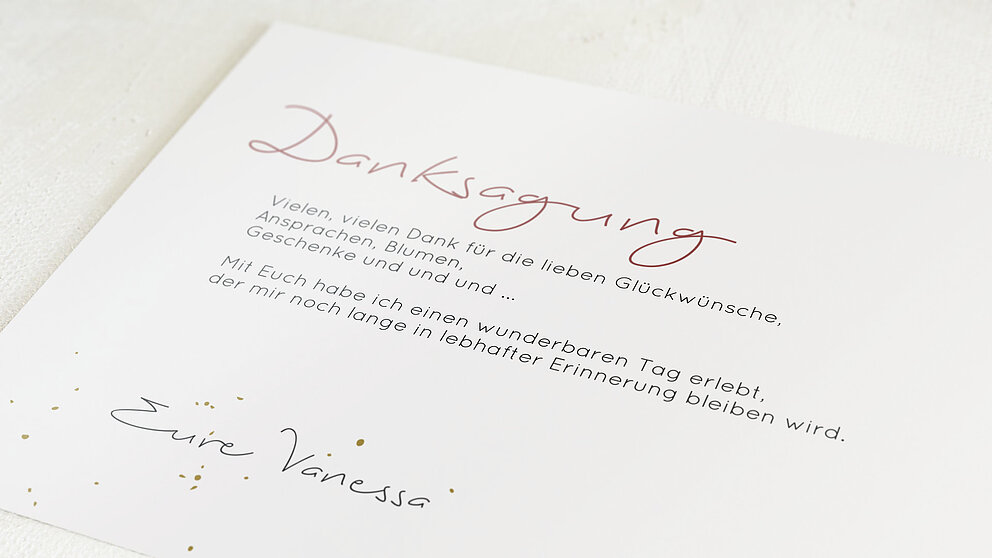 Danksagung
Vielen, vielen Dank für die lieben Glückwünsche,
Ansprachen, Blumen,
Geschenke und und und ...
Mit Euch habe ich einen wunderbaren Tag erlebt,
der mir noch lange in lebhafter Erinnerung bleiben wird.
Eure Vanessa